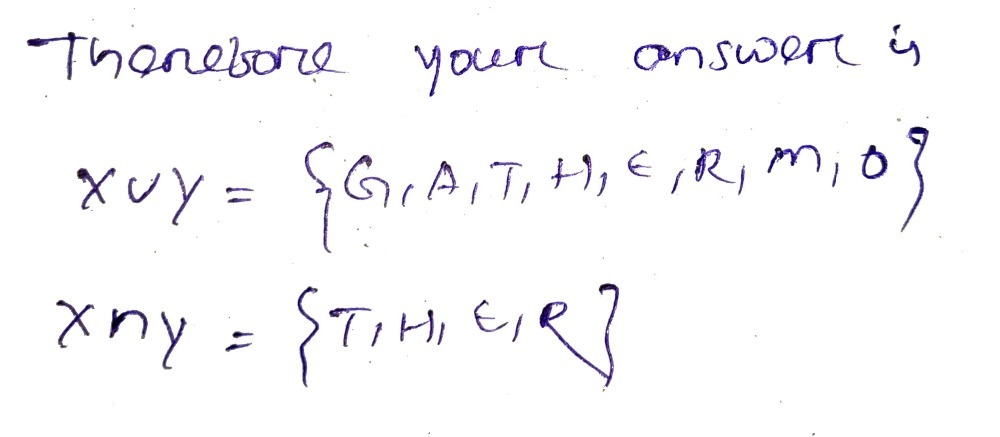 Therefore your answer is
X∪Y = {G, A, T, H, E, R, M, O}
X∩Y = {T, H, E, R}